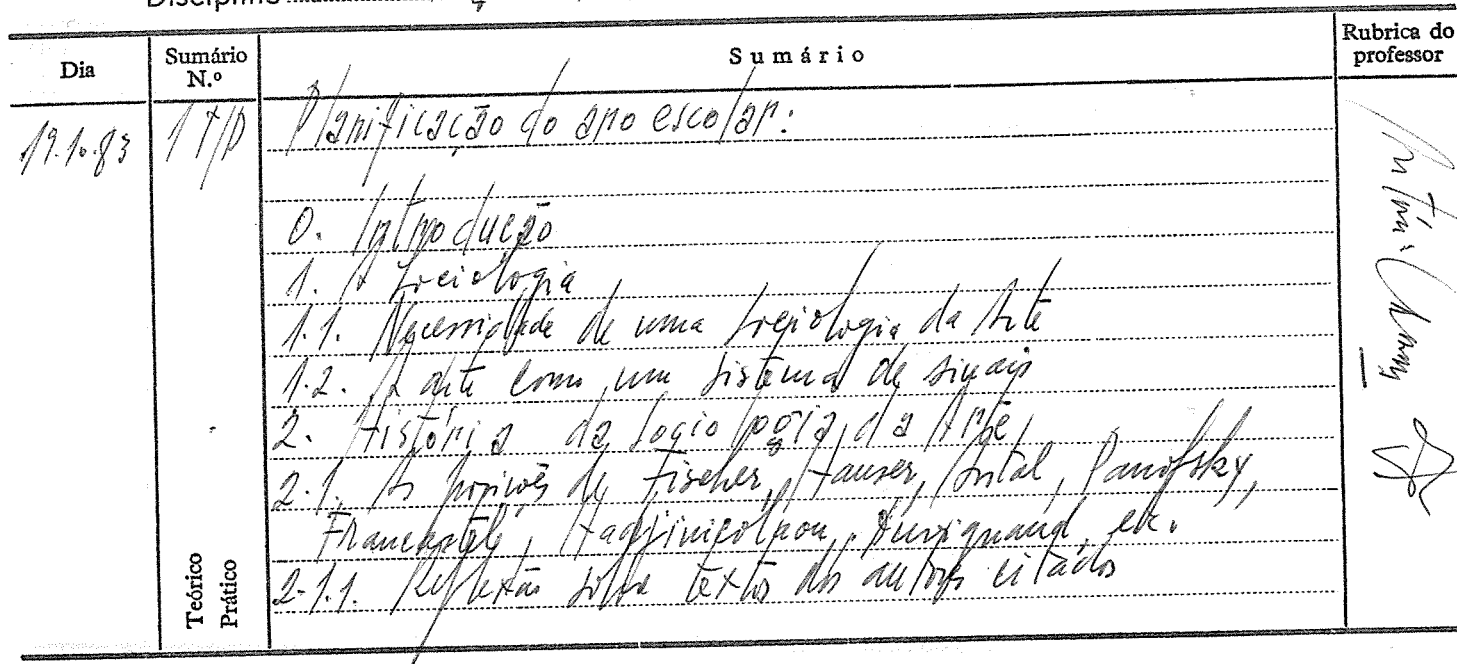 Disciplina
Dia Sumário N.º Sumário Rubrica do professor
19.10.83 1 T/P Planificação do ano escolar:
0. Introdução
1. A Sociologia
1.1. Necessidade de uma Sociologia da Arte
1.2. A arte como um sistema de sinais
2. História da Sociologia da Arte
2.1. As posições de Fischer, Hauser, Antal, Panofsky,
Francastel, Hadjinicolaou, Duvignaud, etc.
2.1.1. Reflexão sobre textos dos autores citados
Teórico
Prático